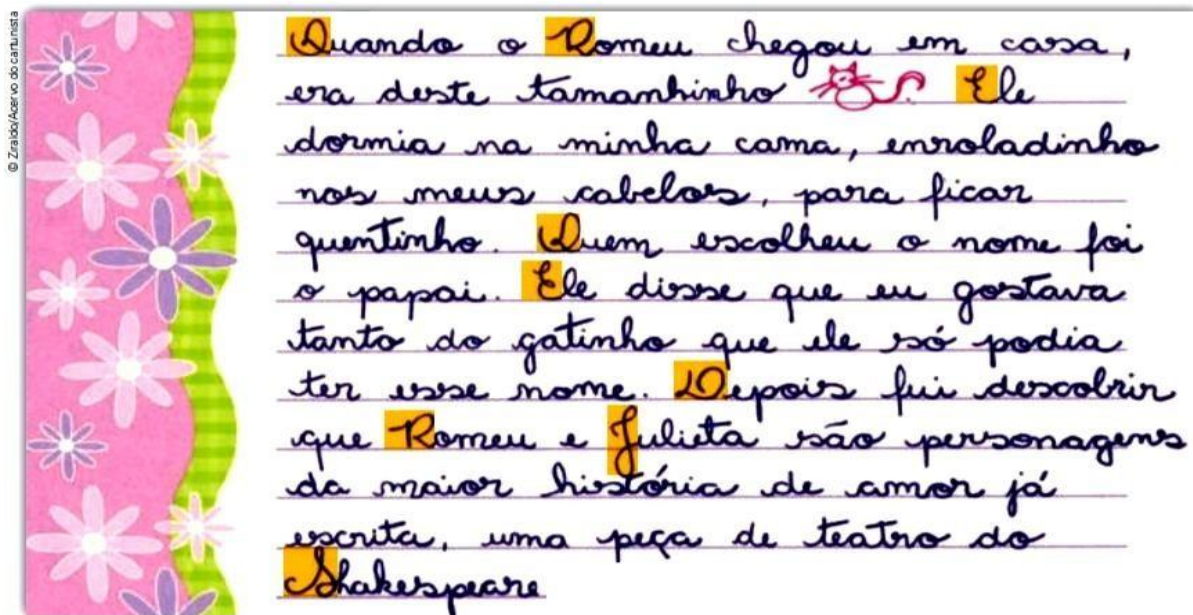 © Ziraldo/Acervo do cartunista
Quando o Romeu chegou em casa,
era deste tamanhinho. Ele
dormia na minha cama, enroladinho
nos meus cabelos, para ficar
quentinho. Quem escolheu o nome foi
o papai. Ele disse que eu gostava
tanto do gatinho que ele só podia
ter esse nome. Depois fui descobrir
que Romeu e Julieta são personagens
da maior história de amor já
escrita, uma peça de teatro do
Shakespeare